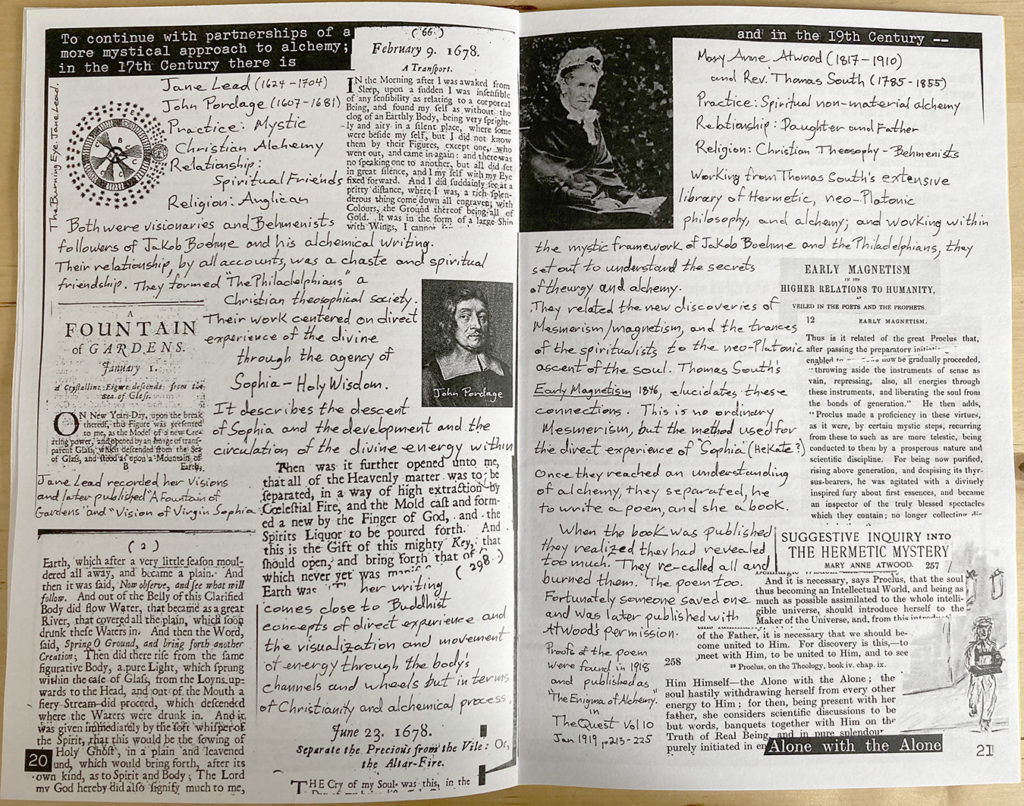 To continue with partnerships of a
more mystical approach to alchemy;
in the 17th Century there is
Jane Lead (1624-1704)
John Pordage (1607-1681)
Practice: Mystic
Christian Alchemy
Relationship:
Spiritual Friends
Religion: Anglican
The Burning Eye. Jane Lead.
(66)
February 9. 1678.
A Transport.
IN the Morning after I was awaked from
Sleep, upon a sudden I was insensible
of any sensibility as relating to a corporeal
Being, and found my self as without the
clog of an Earthly Body, being very spright-
ly and airy in a silent place, where some
were beside my self, but I did not know
them by their Figures, except one, who
went out, and came in again: and there was
no speaking one to another, but all did set
in great silence, and I my self with my Eye
fixed forward. And I did suddainly see at a
pritty distance, where I was, a rich splen-
derous thing come down all engraven with
Colours, the Ground thereof being all of
Gold. It was in the form of a large Ship
with Wings, I cannot
Both were visionaries and Behmenists
followers of Jakob Boehme and his alchemical writing.
Their relationship by all accounts, was a chaste and spiritual
friendship. They formed "The Philadelphians" a
Christian theosophical society.
Their work centered on direct
experience of the divine
through the agency of
Sophia - Holy Wisdom.
It describes the descent
of Sophia and the development and the
circulation of the divine energy within
John Pordage
A
FOUNTAIN
of GARDENS.
January 1.
A Crystalline Figure descends from the
Sea of Glass.
ON New Years-Day, upon the break
thereof, this Figure was presented
to me, as the Model of a new Crea-
ting power, and opened by an Image of trans-
parent Glass, which descended from the Sea
of Glass, and stood as upon a Mountain of
B Earth,
Jane Lead recorded her Visions
and later published "A Fountain of
Gardens" and "Vision of Virgin Sophia
Then was it further opened unto me,
that all of the Heavenly matter was to be
separated, in a way of high extraction by
Cœlestial Fire, and the Mold cast and form-
ed a new by the Finger of God, and the
Spirits Liquor to be poured forth. And
this is the Gift of this mighty Key, that
should open, and bring forth that of
which never yet was
Earth was
(298.)
her writing
comes close to Buddhist
concepts of direct experience and
the visualization and movement
of energy through the body's
channels and wheels but in terms
of Christianity and alchemical process.
(2)
Earth, which after a very little season moul-
dered all away, and became a plain. And
then it was said, Now observe, and see what will
follow. And out of the Belly of this Clarified
Body did flow Water, that became as a great
River, that covered all the plain, which soon
drunk these Waters in. And then the Word,
said, Spring O Ground, and bring forth another
Creation; Then did there rise from the same
figurative Body, a pure Light, which sprung
within the case of Glass, from the Loyns up-
wards to the Head, and out of the Mouth a
fiery Stream did proceed, which descended
where the Waters were drunk in. And it
was given immediately by the soft whisper of
the Spirit, that this would be the sowing of
Holy Ghost, in a plain and leavened
und, which would bring forth, after its
own kind, as to Spirit and Body; The Lord
my God hereby did also signify much to me,
20
June 23. 1678.
Separate the Precious from the Vile: Or,
the Altar-Fire.
THE Cry of my Soul was this, in the
and in the 19th Century --
Mary Anne Atwood (1817-1910)
and Rev. Thomas South (1785-1855)
Practice: Spiritual non-material alchemy
Relationship: Daughter and Father
Religion: Christian Theosophy - Behmenists
Working from Thomas South's extensive
library of Hermetic, neo-Platonic
philosophy, and alchemy; and working within
the mystic framework of Jakob Boehme and the Philadelphians, they
set out to understand the secrets
of theurgy and alchemy.
They related the new discoveries of
Mesmerism/magnetism, and the trances
of the spiritualists to the neo-Platonic
ascent of the soul. Thomas South's
Early Magnetism 1846, elucidates these
connections. This is no ordinary
Mesmerism, but the method used for
the direct experience of "Sophia" (Hekate?)
Once they reached an understanding
of alchemy, they separated, he
to write a poem, and she a book.
EARLY MAGNETISM
IN ITS
HIGHER RELATIONS TO HUMANITY,
AS
VEILED IN THE POETS AND THE PROPHETS.
12 EARLY MAGNETISM.
Thus is it related of the great Proclus that,
after passing the preparatory
enabled to now be gradually proceeded,
"throwing aside the instruments of sense as
vain, repressing, also, all energies through
these instruments, and liberating the soul from
the bonds of generation." He then adds,
"Proclus made a proficiency in these virtues,
as it were, by certain mystic steps, recurring
from these to such as are more telestic, being
conducted to them by a prosperous nature and
scientific discipline. For being now purified,
rising above generation, and despising its thyr-
sus-bearers, he was agitated with a divinely
inspired fury about first essences, and became
an inspector of the truly blessed spectacles
which they contain; no longer collecting
When the book was published
they realized they had revealed
too much. They re-called all and
burned them. The poem too.
Fortunately someone saved one
and was later published with
Atwood's permission.
Proofs of the poem
were found in 1918
and published as
"The Enigma of Alchemy."
in
The Quest Vol 10
Jan 1919 p213-225
SUGGESTIVE INQUIRY INTO
THE HERMETIC MYSTERY
MARY ANNE ATWOOD. 257
And it is necessary, says Proclus, that the soul
thus becoming an Intellectual World, and being as
much as possible assimilated to the whole intelli-
gible universe, should introduce herself to the
Maker of the Universe, and, from this
of the Father, it is necessary that we should be-
come united to Him. For discovery is this,—to
meet with Him, to be united to Him, and to see
Proclus, on the Theology, book iv. chap. ix.
258
Him Himself—the Alone with the Alone; the
soul hastily withdrawing herself from every other
energy to Him; for then, being present with her
father, she considers scientific discussions to be
but words, banquets together with Him on the
Truth of Real Being, and in pure splendour
purely initiated in
Alone with the Alone
21